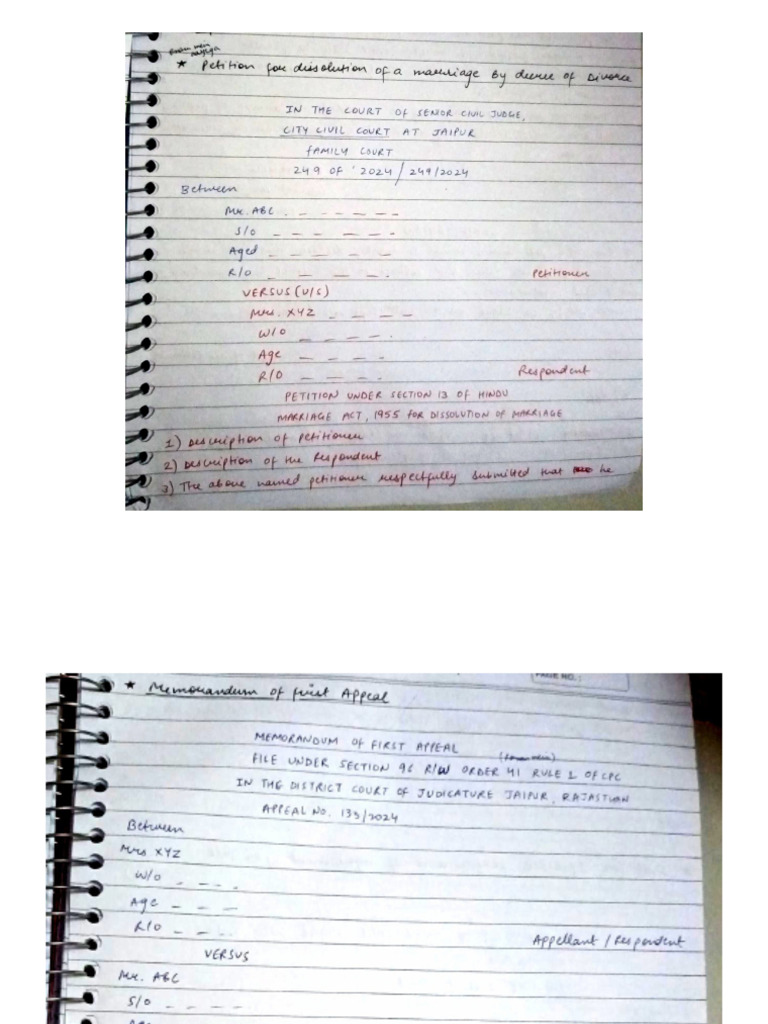 * Petition for dissolution of a marriage by decree of Divorce
IN THE COURT OF SENIOR CIVIL JUDGE,
CITY CIVIL COURT AT JAIPUR
FAMILY COURT
249 OF 2024 / 249/2024
Between
Mr. ABC _ _ _ _ _ _
S/O _ _ _ _ _.
Aged _ _ _ _ _
R/O _ _ _ _. Petitioner
VERSUS (V/S)
Mrs. XYZ _ _ _ _
W/O _ _ _ _.
Age _ _ _ _
R/O _ _ _ _. Respondent
PETITION UNDER SECTION 13 OF HINDU
MARRIAGE ACT, 1955 FOR DISSOLUTION OF MARRIAGE
1) Description of petitioner
2) Description of the Respondent
3) The above named petitioner respectfully submitted that he
PAGE NO.:
* Memorandum of first Appeal
MEMORANDUM OF FIRST APPEAL
FILE UNDER SECTION 96 R/W ORDER 41 RULE 1 OF CPC
IN THE DISTRICT COURT OF JUDICATURE JAIPUR, RAJASTHAN
APPEAL NO. 133/2024
Between
Mrs XYZ
W/O _ _ _ _
Age _ _ _
R/O _ _ . Appellant / Respondent
VERSUS
Mr. ABC
S/O _ _ _ _